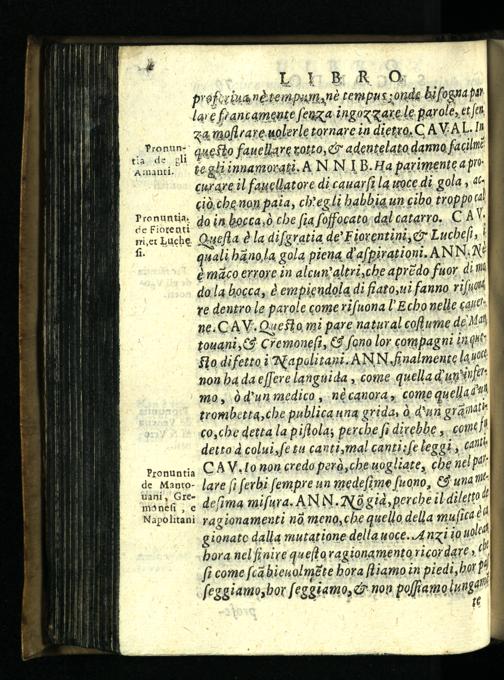 LIBRO
proferiua nè tempum, nè tempus; onde bisogna par
lare francamente senza ingozzare le parole, et sen
za mostrare uolerle tornare in dietro. CAVAL. In
questo fauellare rotto, & adentelato danno facilmẽ
te gli innamorati. ANNIB. Ha parimente a pro-
curare il fauellatore di cauarsi la uoce di gola, ac-
ciò che non paia, ch'egli habbia un cibo troppo cal
do in bocca, ò che sia soffocato dal catarro. CAV.
Questa è la disgratia de' Fiorentini, & Luchesi, i
quali hãno la gola piena d'aspirationi. ANN. Nè
è mãco errore in alcun'altri, che aprẽdo fuor di mo
do la bocca, è empiendola di fiato, ui fanno risuona
re dentro le parole come risuona l'Echo nelle cauer-
ne. CAV. Questo mi pare natural costume de' Man
touani, & Cremonesi, & sono lor compagni in que-
sto difetto i Napolitani. ANN. finalmente la uoce
non ha da essere languida, come quella d'un'infer-
mo, ò d'un medico, nè canora, come quella d'un
trombetta, che publica una grida, ò d'un grãmati-
co, che detta la pistola; perche si direbbe, come fu
detto à colui, se tu canti, mal canti: se leggi, canti.
CAV. Io non credo però, che uogliate, che nel par-
lare si serbi sempre un medesimo suono, & una me-
desima misura. ANN. Nõ già, perche il diletto de
ragionamenti nõ meno, che quello della musica è ca
gionato dalla mutatione della uoce. Anzi io uoleua
hora nel finire questo ragionamento ricordare, che
si come scãbieuolmẽte hora stiamo in piedi, hor pas
seggiamo, hor seggiamo, & non possiamo lungamẽ
te
Pronun-
tia de gli
Amanti.
Pronuntia,
de Fiorenti
ni, et Luche
si.
Pronuntia
de Manto-
uani, Cre-
monesi, e
Napolitani